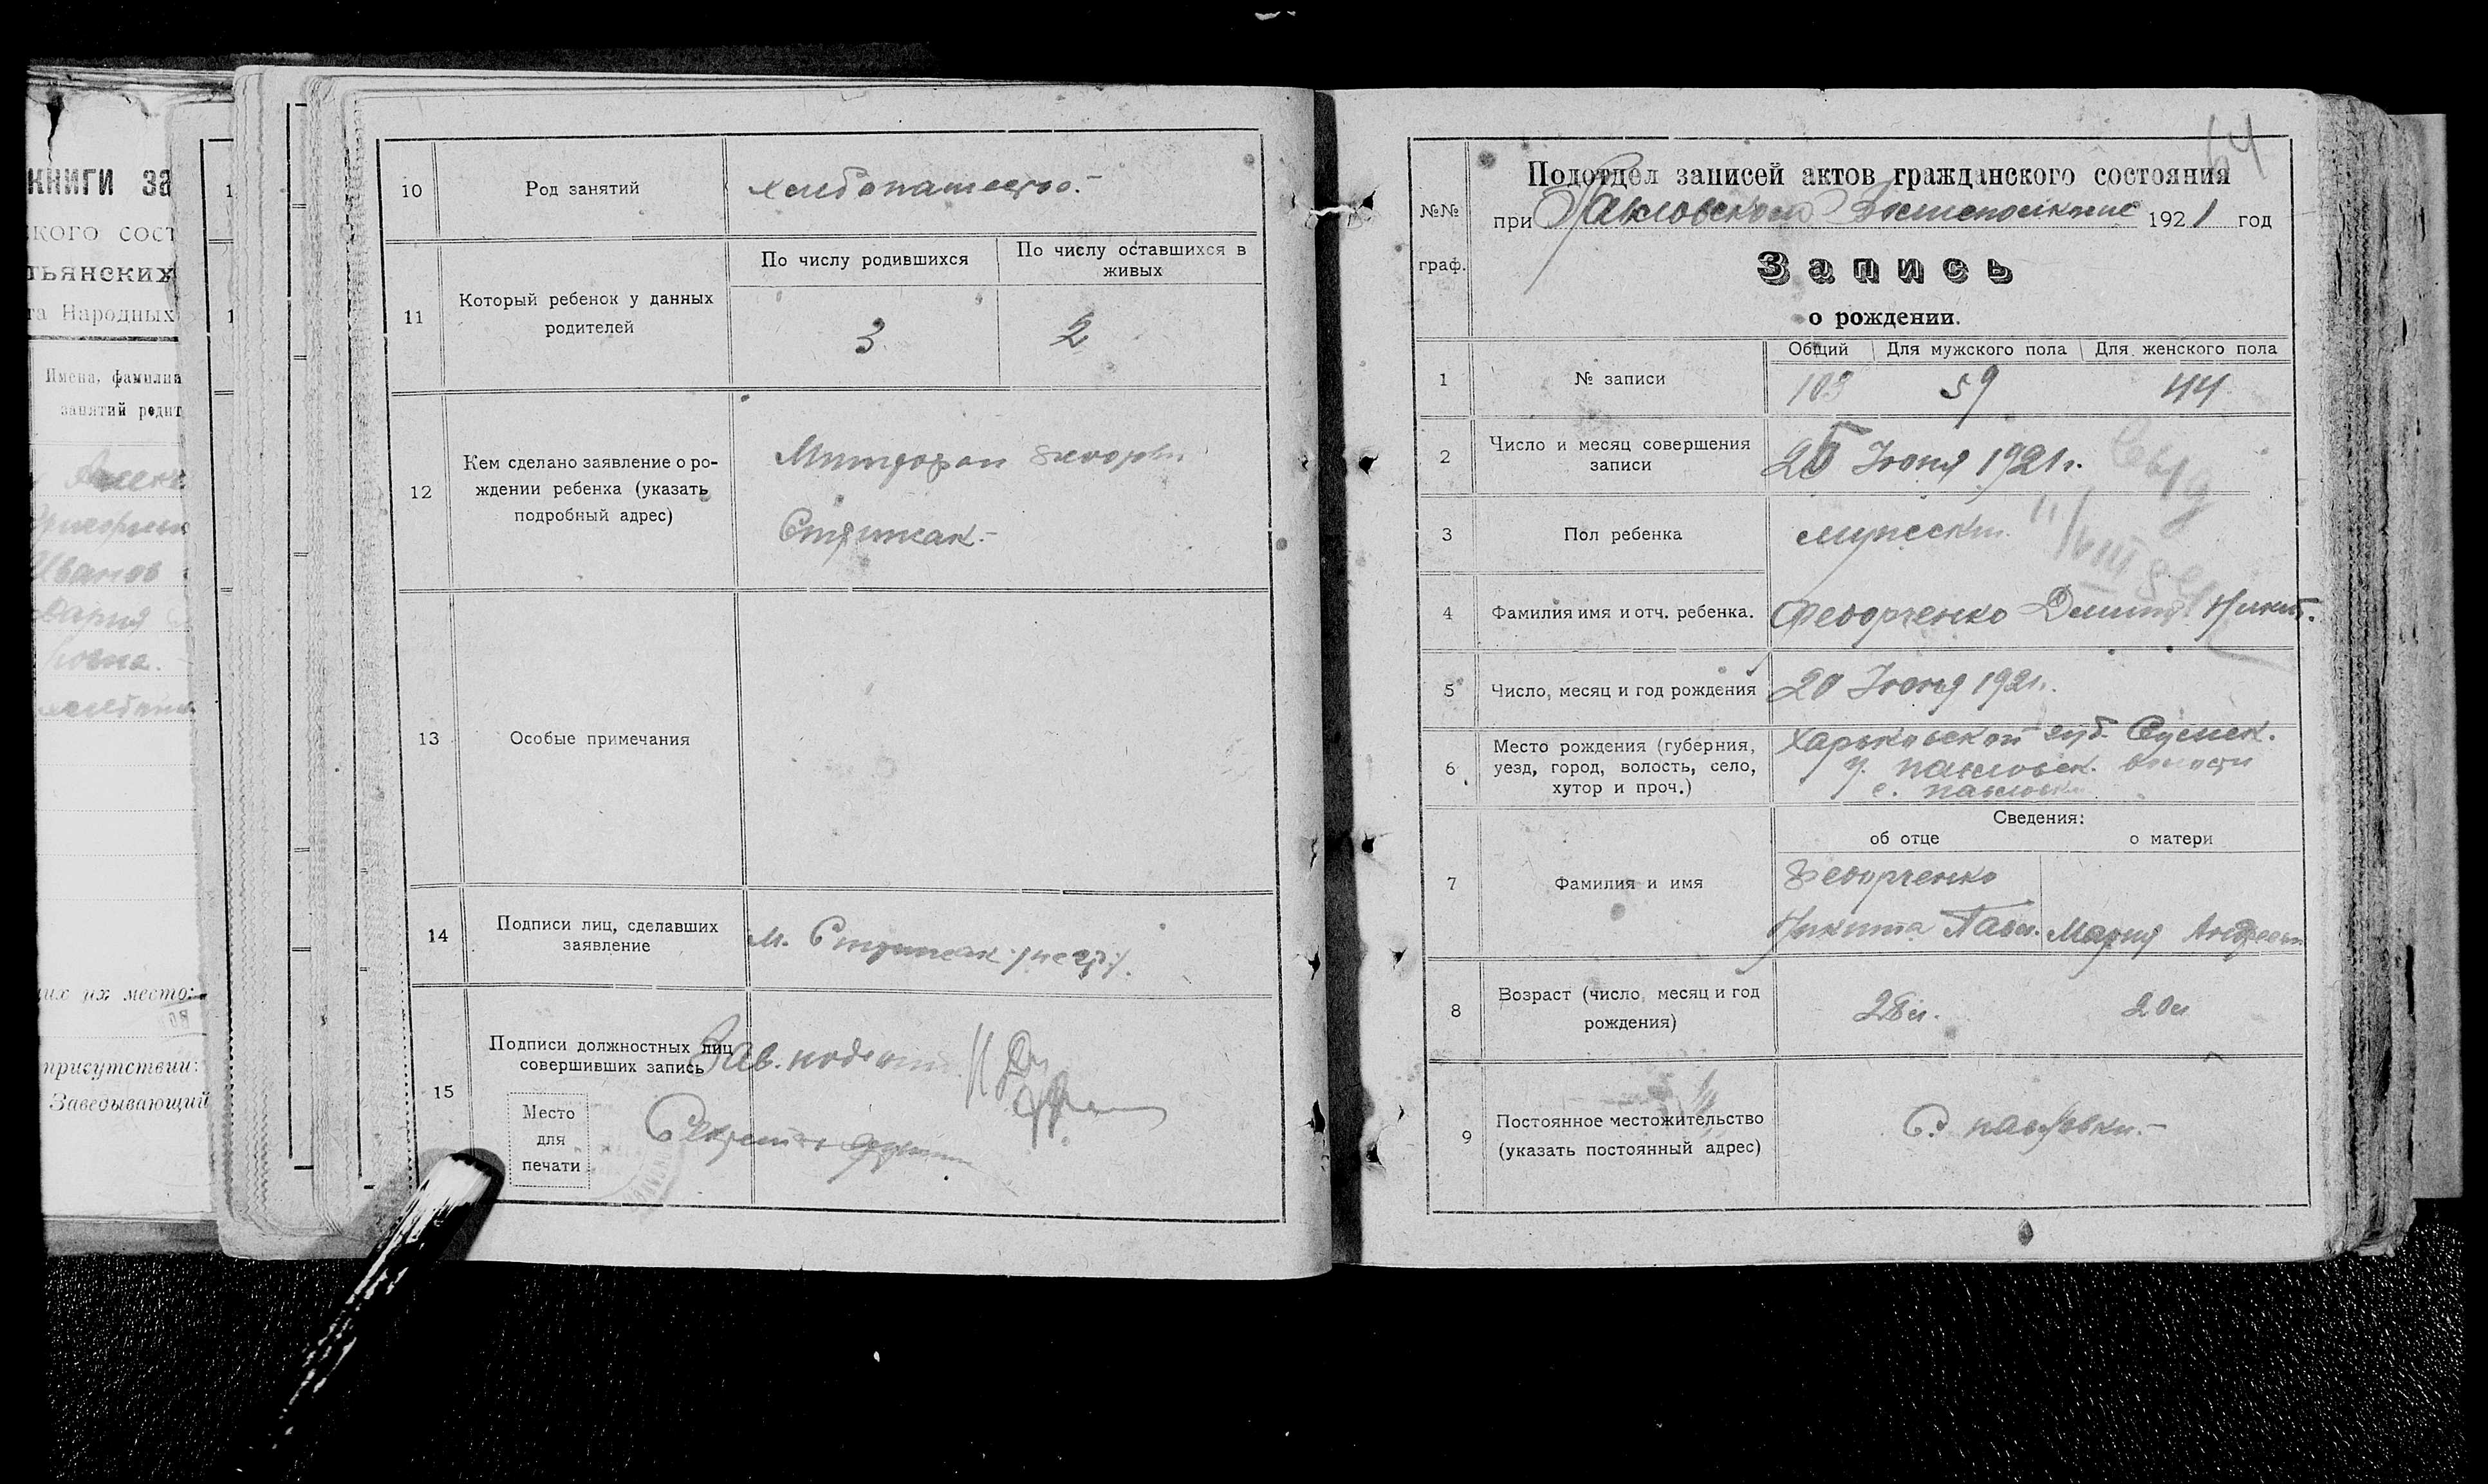 книги за
кого сост
тьянских
та Народных
Имена, фамилия
занятий родит
Иванов
Дария
их их место:
присутствии:
Заведывающий
10
Род занятий
хлебопашество.-
11
Который ребенок у данных
родителей
По числу родившихся
По числу оставшихся в
живых
3
2
12
Кем сделано заявление о ро-
ждении ребенка (указать
подробный адрес)
Стрижак.-
13
Особые примечания
14
Подписи лиц, сделавших
заявление
М. Стрижак
15
Подписи должностных лиц
совершивших запись
Зав. подотд.
Место
для
печати
64
№№
граф.
Подотдел записей актов гражданского состояния
при Павловском Волисполкоме 1921 год
Запись
о рождении.
1
№ записи
Общий
Для мужского пола
Для женского пола
103
59
44
2
Число и месяц совершения
записи
25 Июня 1921г.
3
Пол ребенка
мужеский
4
Фамилия имя и отч. ребенка.
Федорченко Дмитр. Никит.
5
Число, месяц и год рождения
20 Июня 1921г.
6
Место рождения (губерния,
уезд, город, волость, село,
хутор и проч.)
Харьковской губ. Сумск.
у. Павловск. волости
с. Павловки
7
Фамилия и имя
Сведения:
об отце
о матери
Федорченко
Никита Павл.
Мария Андреевн
8
Возраст (число, месяц и год
рождения)
20 л
9
Постоянное местожительство
(указать постоянный адрес)
С. Павловки.-